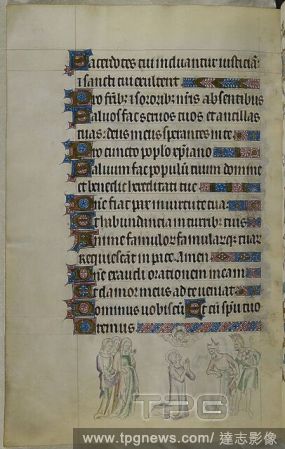 Sacerdotes tui induantur iusticiā:
⁊ sancti tui exultent
Pro frīb; ⁊ sororib; nr̄is absentibus
Saluos fac seruos tuos et ancillas
tuas: deus meus sperantes in te.
Pro cuncto poplo xp̄iano
Saluum fac populū tuum domine
et benedic hereditati tue
Dn̄e fiat pax in uirtute tua:
Et habundancia in turrib; tuis
Anime famulor̄ famularūq; tuar̄
Requiescāt in pace. Amen
Dn̄e exaudi orationem meam
Et clamor meus ad te ueniat
Dominus uobiscū Et cū spū tuo
Oremus
TPG
www.tpgnews.com/達志影像